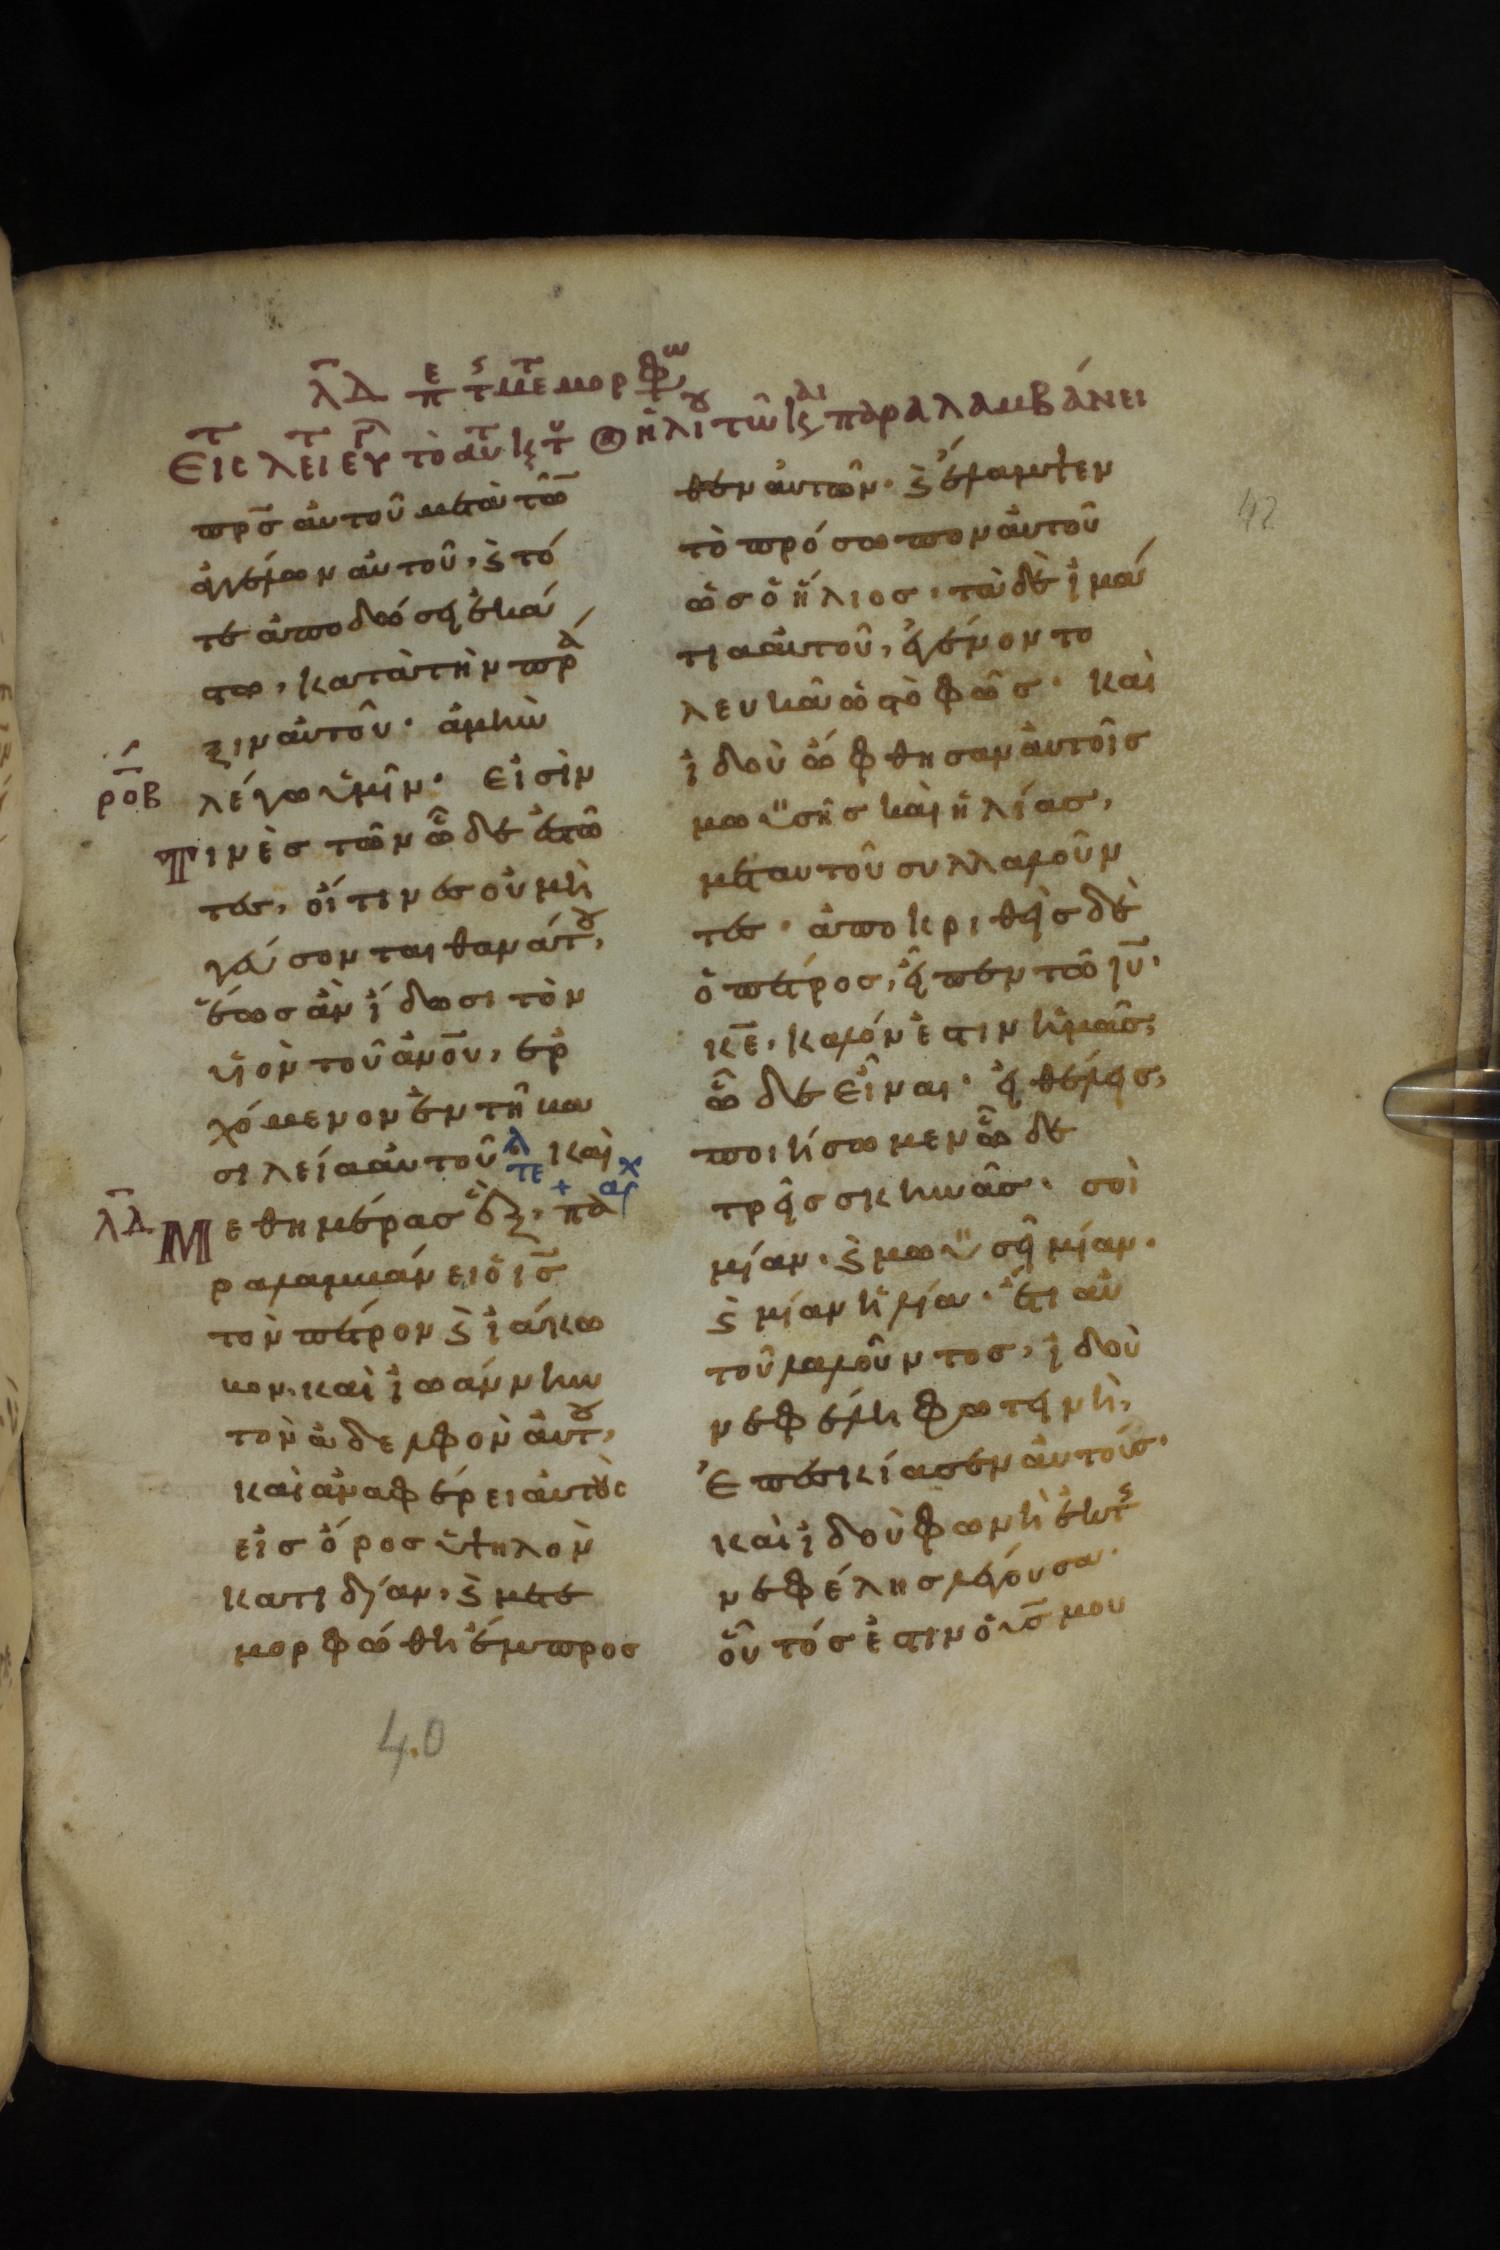 λ̅Δ̅ πε τς μεμορφω
Εις λει ευ τὸ αυ κτ ἡλι τῶ κ παραλαμβάνει
42
πρ̅ς αὐτοῦ μετὰ τῶ̅
ἀγγέλων αὐτοῦ, ϗ τό
τε ἀποδώσει ἑκά
στω, κατὰ τὴν πρᾶ
ξιν αὐτοῦ. ἀμὴν
ρ̅ο̅β̅ λέγω ὑμῖν. εἰσὶν
Τινὲς τῶν ὧδε ἑστώ
τες, οἵτινες οὐ μὴ
γεύσονται θανάτου,
ἕως ἂν ἴδωσι τὸν
υἱὸν τοῦ ἀν̅ο̅υ̅, ἐρ
χόμενον ἐν τῆ βα
σιλεία αὐτοῦ τε λ και
λ̅Δ̅ Μεθημέρας ἓξ, + πα αρχ
ραλαμβάνει ὁ ι̅ς̅
τὸν πέτρον ϗ ἰάκω
βον, καὶ ἰωάννην
τὸν ἀδελφὸν αὐτοῦ,
καὶ ἀναφέρει αὐτοὺς
εἰς ὄρος ὑψηλὸν
κατιδίαν, ϗ μετε
μορφώθη ἔμπροσ
θεν αὐτῶν. ϗ ἔλαμψεν
τὸ πρόσωπον αὐτοῦ
ὡς ὁ ἥλιος, τὰ δὲ ἱμά
τια αὐτοῦ, ἐγένοντο
λευκὰ ὡς τὸ φῶς. καὶ
ἰδοὺ ὤφθησαν αὐτοῖς
μωϋσῆς καὶ ἠλίας,
μεταυτοῦ συλλαλοῦν
τες. ἀποκριθεὶς δὲ
ὁ πέτρος, εἶπεν τῶ ι̅υ̅.
κ̅ε̅, καλόν ἐστιν ἡμᾶς,
ὧδε εἶναι. εἰ θέλεις,
ποιήσωμεν ὧδε
τρεῖς σκηνὰς. σοὶ
μίαν. ϗ μωϋσῆ μίαν.
ϗ μίαν ἠλία. ἔτι αὐ
τοῦ λαλοῦντος, ἰδοὺ
νεφέλη φωτεινὴ,
ἐπεσκίασεν αὐτούς.
καὶ ἰδοὺ φωνὴ ἐκ τῆς
νεφέλης λέγουσα.
οὗτός ἐστιν ὁ υ̅ς̅ μου
40